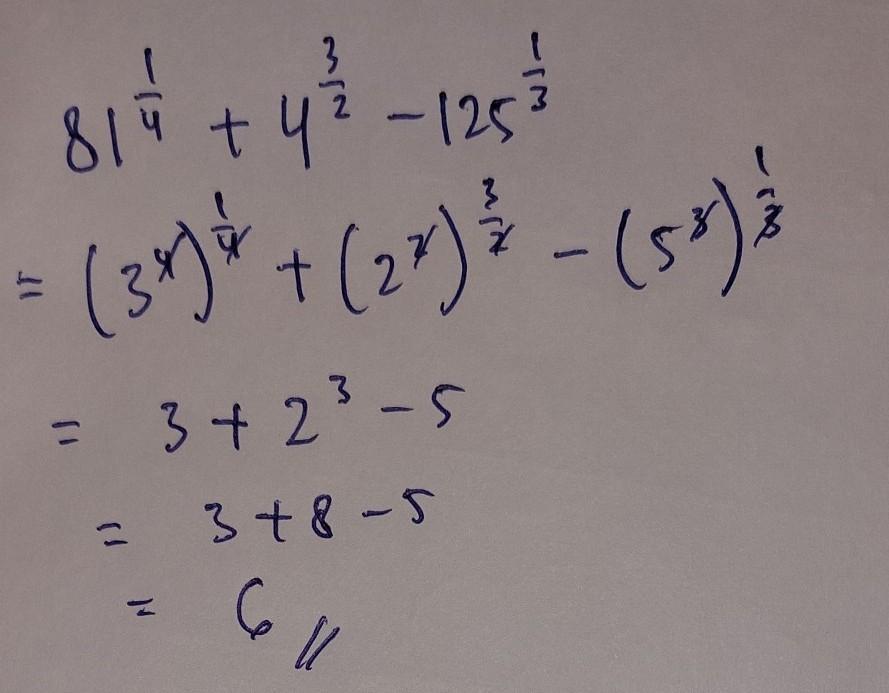 81^{1/4} + 4^{3/2} - 125^{1/3}
= (3^4)^{1/4} + (2^2)^{3/2} - (5^3)^{1/3}
= 3 + 2^3 - 5
= 3 + 8 - 5
= 6 //